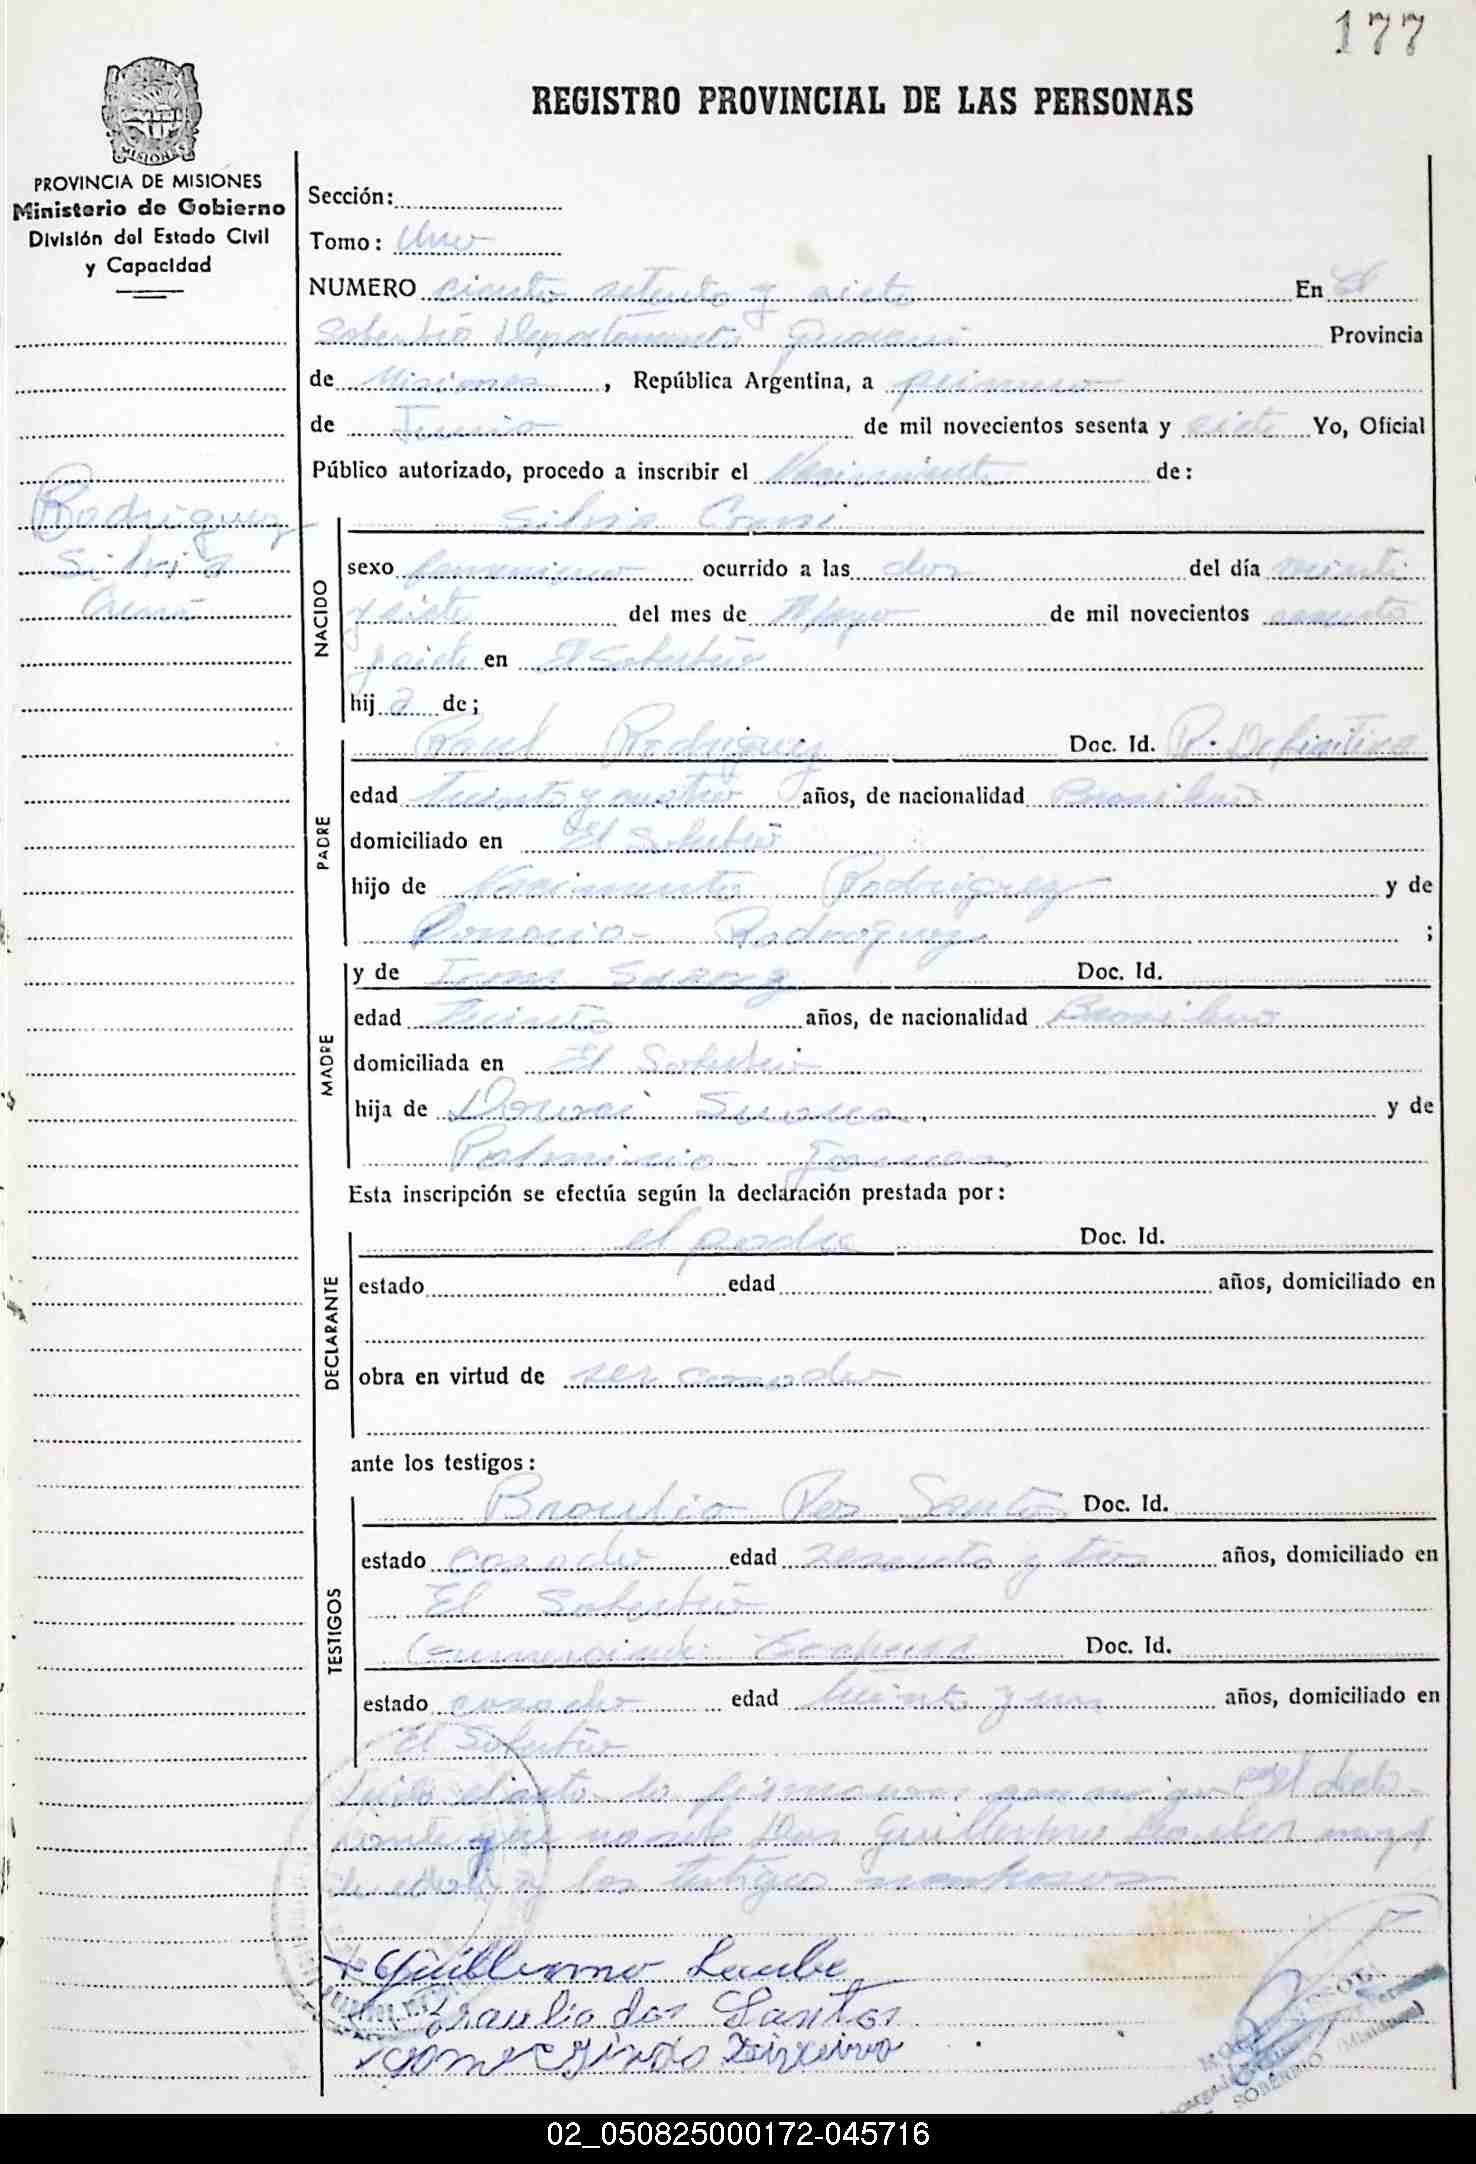 177
REGISTRO PROVINCIAL DE LAS PERSONAS
MISIONES
PROVINCIA DE MISIONES
Ministerio de Gobierno
División del Estado Civil
y Capacidad
Rodriguez
Silvia
Sección:
Tomo: Uno
NUMERO ciento setenta y siete En El
Soberbio Departamento Guarani Provincia
de Misiones, República Argentina, a primero
de Junio de mil novecientos sesenta y siete Yo, Oficial
Público autorizado, procedo a inscribir el Nacimiento de:
Silvia
NACIDO
sexo femenino ocurrido a las dos del día veinti
y siete del mes de Mayo de mil novecientos sesenta
y siete en El Soberbio
hij a de;
PADRE
Raul Rodriguez Doc. Id. R. Definitiva
edad treinta y cuatro años, de nacionalidad Brasilera
domiciliado en El Soberbio
hijo de Nacimento Rodriguez y de
Rodriguez ;
MADRE
y de Irma Suarez Doc. Id.
edad treinta años, de nacionalidad Brasilera
domiciliada en El Soberbio
hija de y de
Esta inscripción se efectúa según la declaración prestada por:
DECLARANTE
el padre Doc. Id.
estado edad años, domiciliado en
obra en virtud de ser casado
ante los testigos:
TESTIGOS
Braulio Dos Santos Doc. Id.
estado casado edad sesenta y tres años, domiciliado en
El Soberbio
Doc. Id.
estado casado edad treinta y un años, domiciliado en
El Soberbio
Leido el acto la firmaron conmigo por el decla
rante que no sabe Don Guillermo
y los testigos
Guillermo Laube
Braulio dos Santos
Gomercindo Teixeira
SOBERBIO (Misiones)
02_050825000172-045716